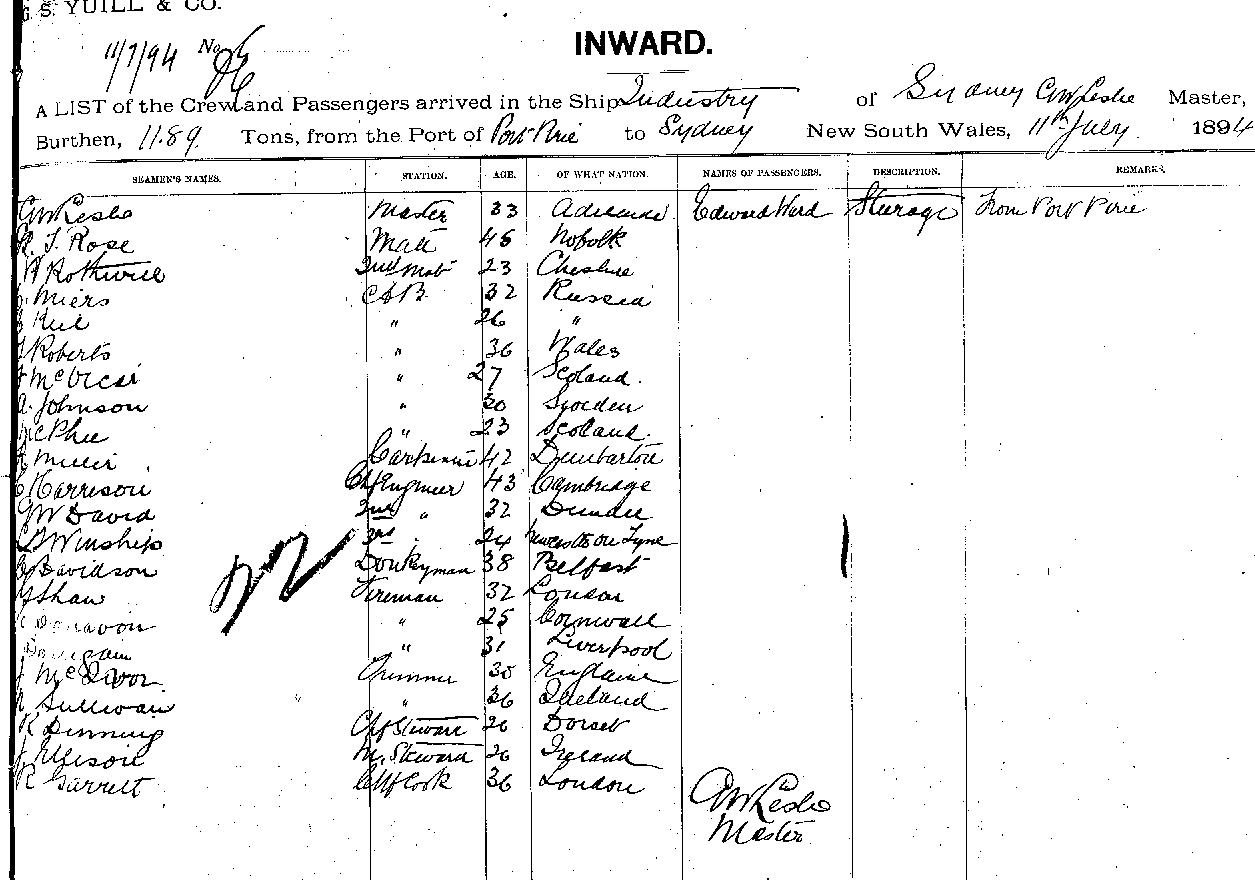 G. S. YUILL & CO.
11/7/94 No.
INWARD.
A LIST of the Crew and Passengers arrived in the Ship Industry of Sydney GW Leslie Master,
Burthen, 1189 Tons, from the Port of Port Pirie to Sydney New South Wales, 11th July 1894
SEAMEN'S NAMES. STATION. AGE. OF WHAT NATION. NAMES OF PASSENGERS. DESCRIPTION. REMARKS.
GW Leslie Master 33 Adelaide Edward Ward Sturage From Port Pirie
Rose Mate 45 Nofolk
Rothwell 2nd Mate 23 Cheshire
Miers AB 32 Russia
" 26 "
Roberts " 36 Wales
McVicar " 27 Scoland.
A. Johnson " 30 Sweden
McPhee " 23 Scoland.
Miller Carpenter 42 Dunbarton
Harrison Chf Engineer 43 Cambridge
David 2nd " 32 Dundee
Winship 3rd " 24 Newcastle on Tyne
Davidson Donkeyman 38 Belfast
Shaw Fireman 32 London
Donavon " 25 Cornwall
" 31 Liverpool
Trimmer 30
Sullivan " 36 Ireland
R Denning Chf Steward 26 Dorset
Ellison M. Steward 26 Ireland
R Garrett Chf Cook 36 London
GW Leslie
Master